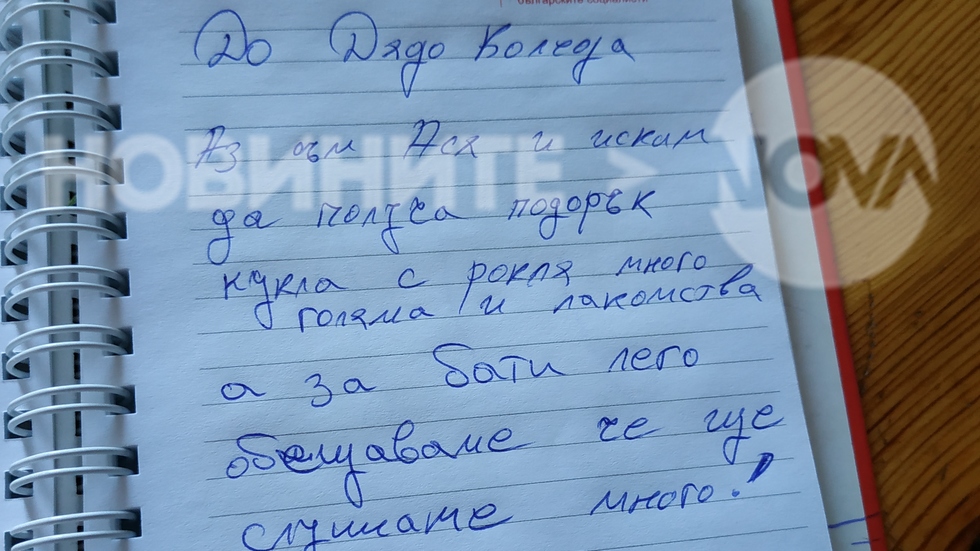 До Дядо Коледа
Аз съм Ая и искам
да получа подарък
кукла с рокля много
голяма и лакомства
а за бати лего
обещаваме че ще
слушаме много!
НОВИНИТЕ
.COM